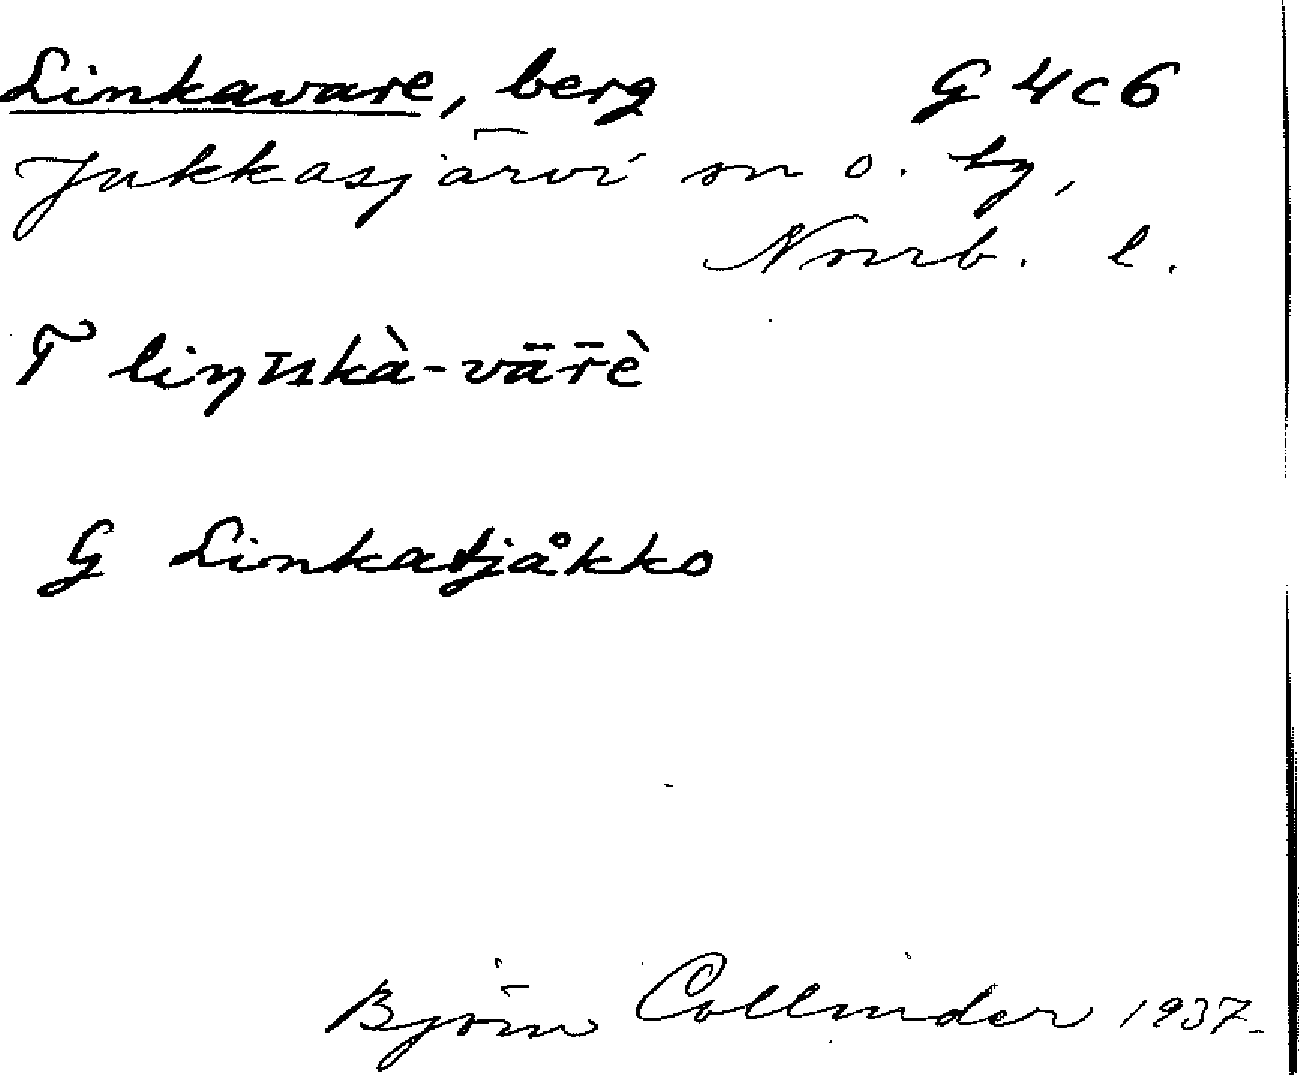 Linkavare, berg G 4 c 6
Jukkasjärvi sn o. by,
Norrb. l.
T liŋᴨkà-vārè̄
G Linkatjåkko
Björn Collinder 1937